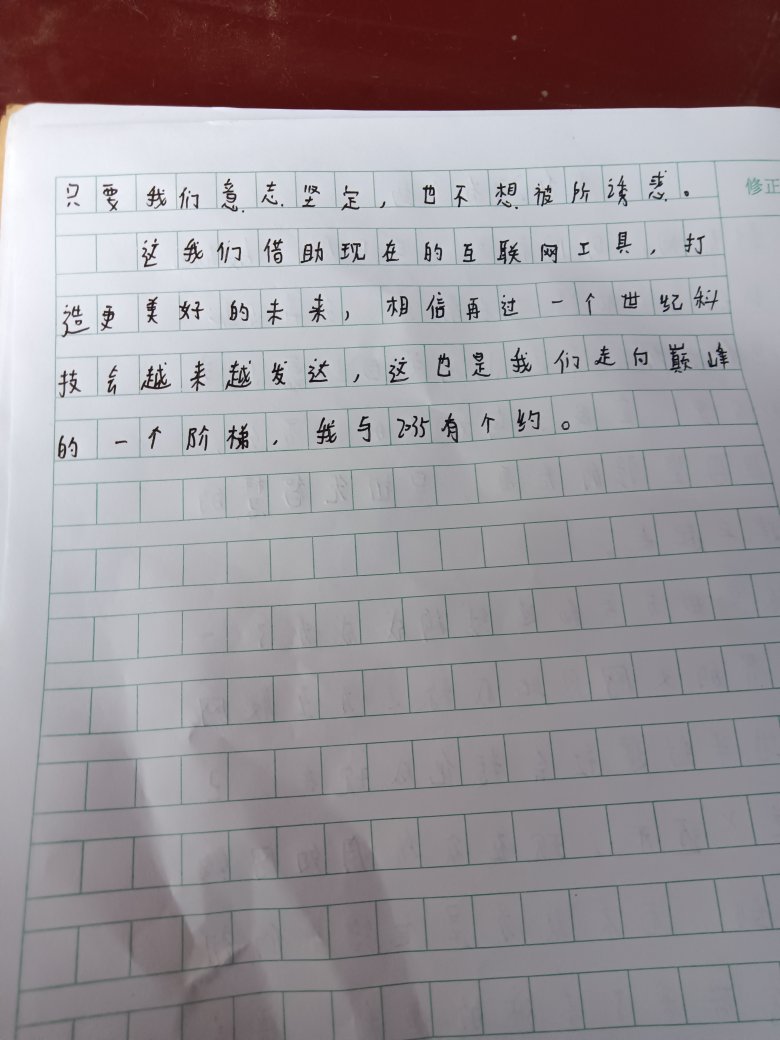 只要我们意志坚定，也不想被所诱惑。
修正
这我们借助现在的互联网工具，打
造更美好的未来，相信再过一个世纪科
技会越来越发达，这也是我们走向巅峰
的一个阶梯，我与2035有个约。